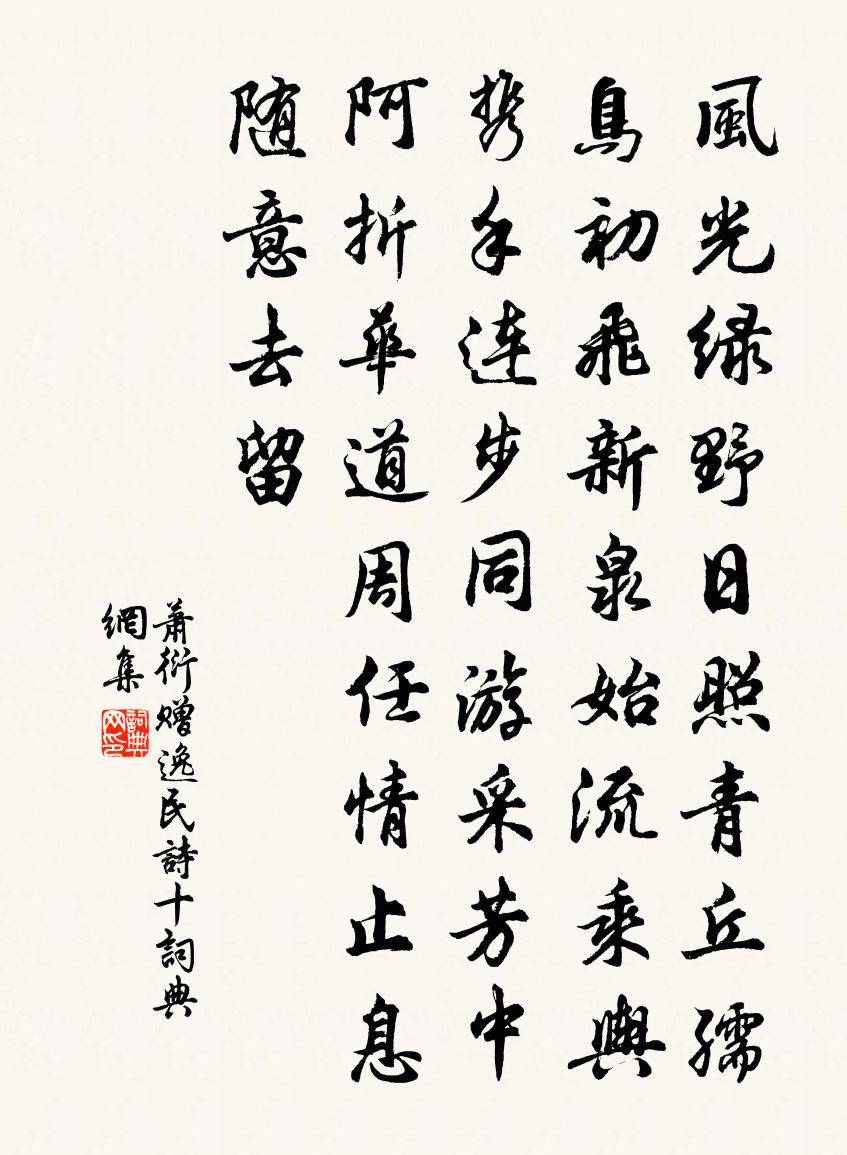 風光緑野日照青丘孺
鳥初飛新泉始流乘輿
携手連步同游采芳中
阿折華道周任情止息
随意去留
萧衍赠逸民詩十詞典
網集
詞典网印